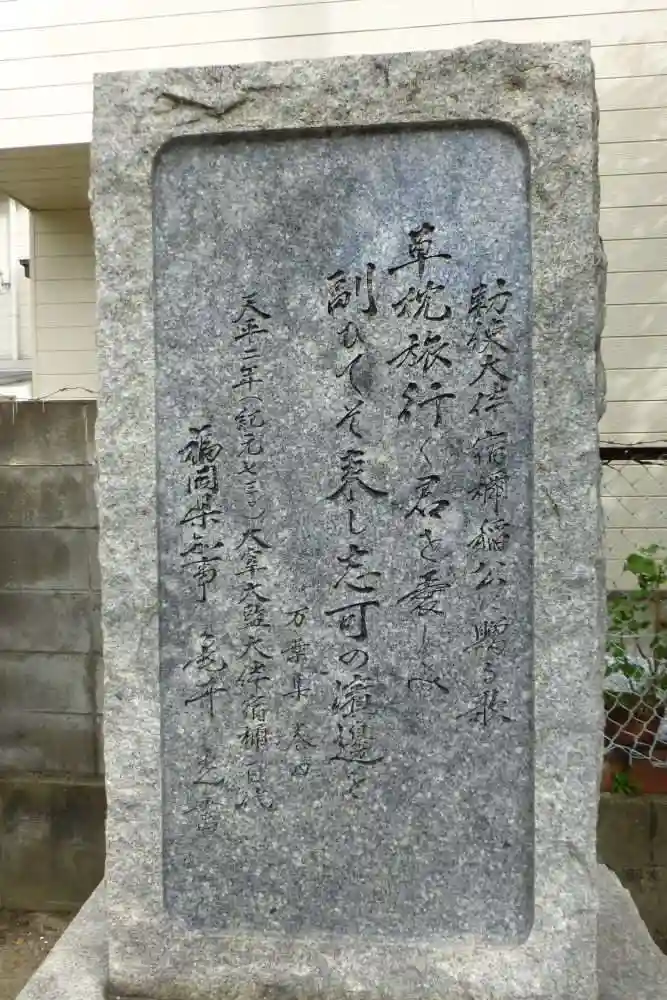 勅使大伴宿禰稲公に贈る歌
草枕旅行く君を愛しみ
副ひてそ来し志可の濱邊を
万葉集 巻四
天平二年(紀元七三〇)大宰大監大伴宿禰百代
福岡県知事 亀井光書